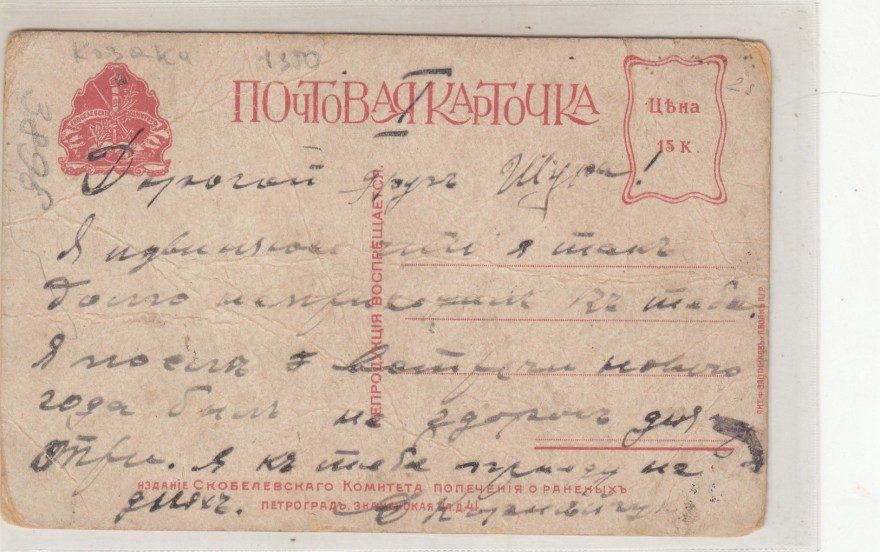 козаки 1350
3896
25
ПОЧТОВАЯ КАРТОЧКА
I
СКОБЕЛЕВСКІЙ КОМИТЕТЪ
Цѣна
15 К.
Дорогой другъ Шура!
Я извиняюсь что я такъ
долго не приходилъ къ тебѣ.
Я послѣ встречи нового
года былъ не здоровъ дня
три. Я къ тебѣ приеду на
дняхъ.
РЕПРОДУКЦІЯ ВОСПРЕЩАЕТСЯ.
ИЗДАНІЕ СКОБЕЛЕВСКАГО КОМИТЕТА ПОПЕЧЕНІЯ О РАНЕНЫХЪ
ПЕТРОГРАДЪ, ЗНАМЕНСКАЯ УЛ. Д. 41.